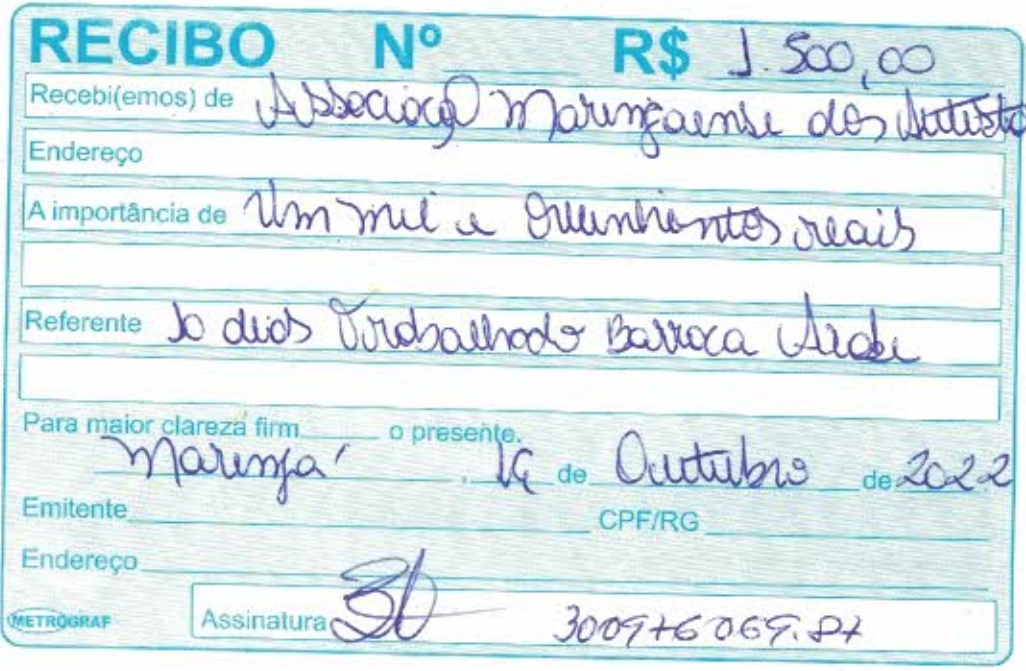 RECIBO Nº R$ 1.500,00
Recebi(emos) de Associação Maringaense dos Autista
Endereço
A importância de Um mil e Quinhentos reais
Referente 10 dias Trabalhado Barraca Árabe
Para maior clareza firm o presente.
Maringá, 14 de Outubro de 2022
Emitente CPF/RG
Endereço
METROGRAF Assinatura 300976069.87